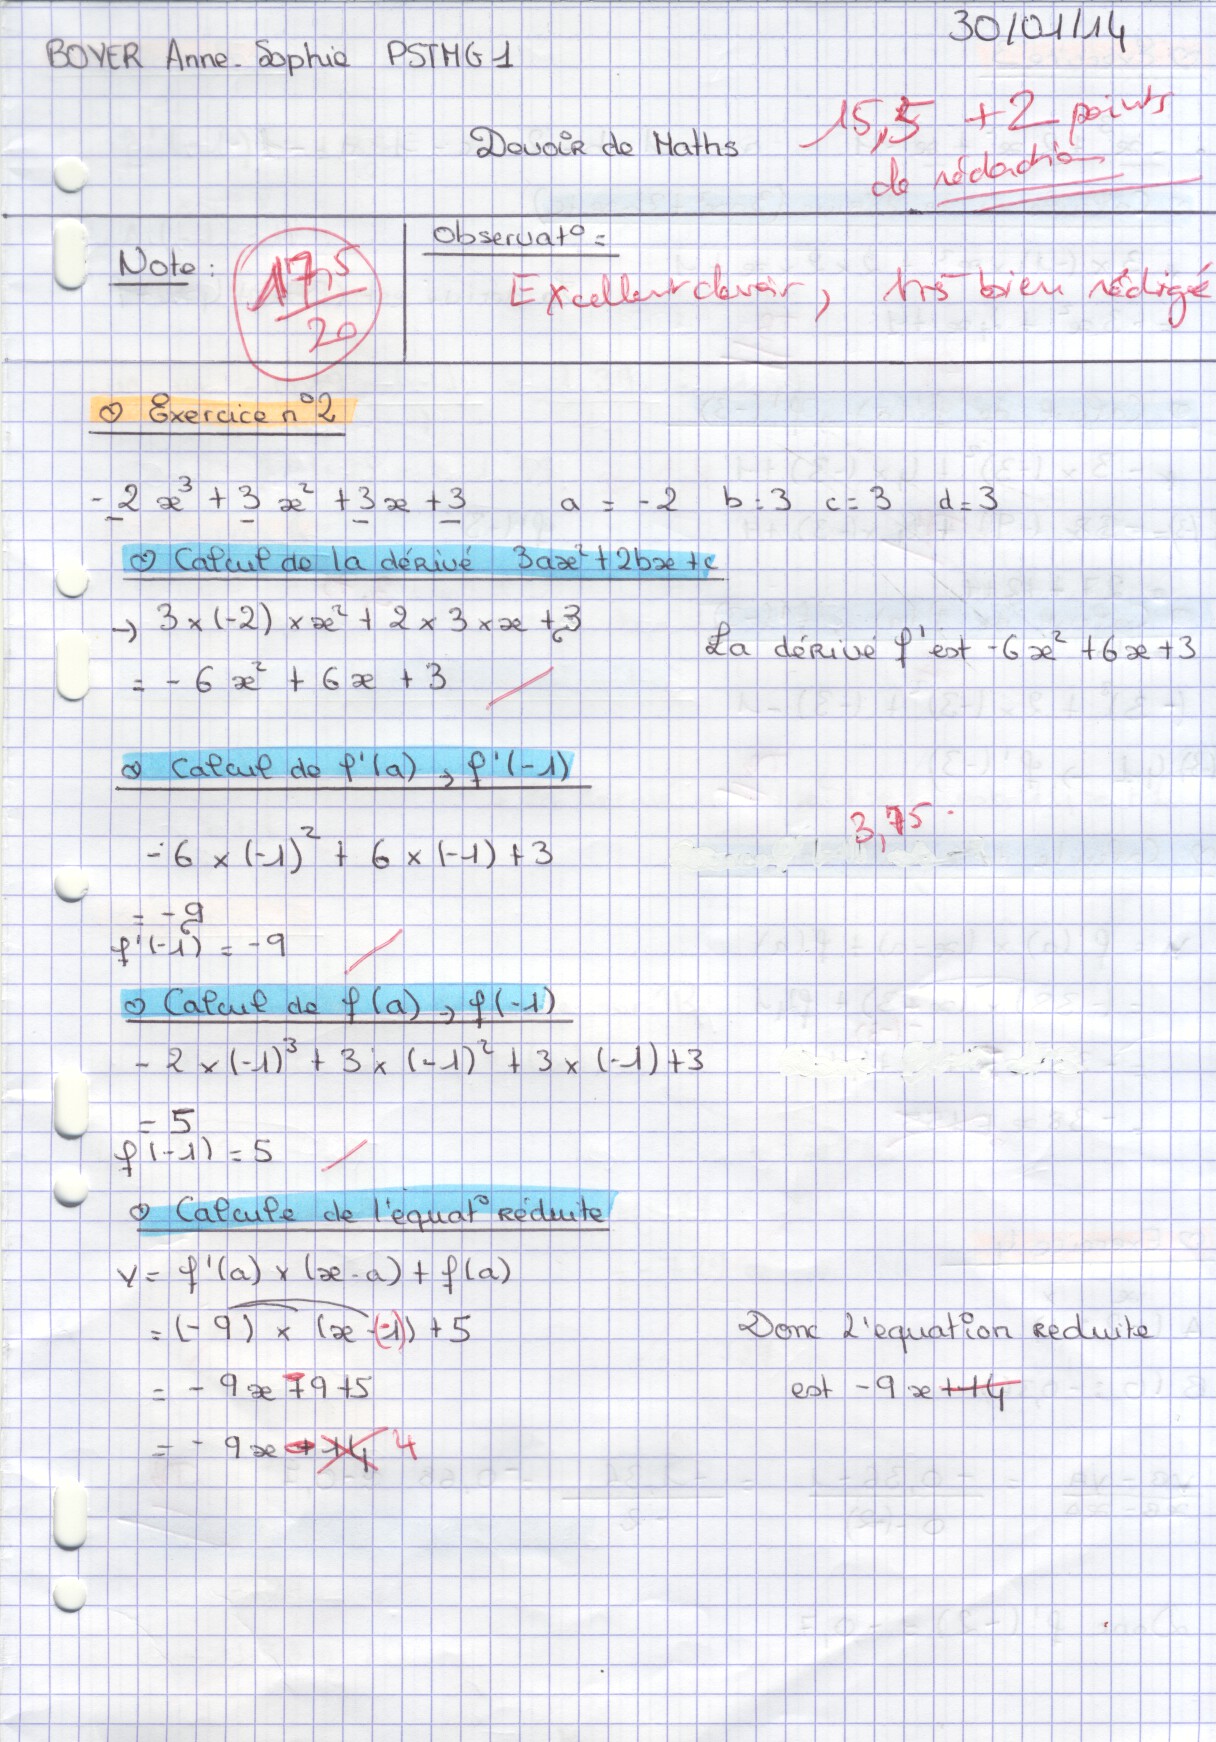 30/01/14
BOYER Anne-Sophie PSTMG1
15,5 +2 points
Devoir de Maths
de rédaction
Note : 17,5/20
Observat° =
Excellent devoir, très bien rédigé
Exercice n°2
-2x³ + 3x² + 3x + 3 a = -2 b = 3 c = 3 d = 3
Calcul de la dérivé 3ax² + 2bx + c
→ 3 × (-2) × x² + 2 × 3 × x + 3
La dérivé f' est -6x² + 6x + 3
= -6x² + 6x + 3
Calcul de f'(a) → f'(-1)
3,75
-6 × (-1)² + 6 × (-1) + 3
= -9
f'(-1) = -9
Calcul de f(a) → f(-1)
-2 × (-1)³ + 3 × (-1)² + 3 × (-1) + 3
= 5
f(-1) = 5
Calcule de l'équat° réduite
Y = f'(a) × (x - a) + f(a)
= (-9) × (x -(-1)) + 5 Donc l'equation reduite
= -9x - 9 + 5 est -9x + 14
= -9x - 14 4